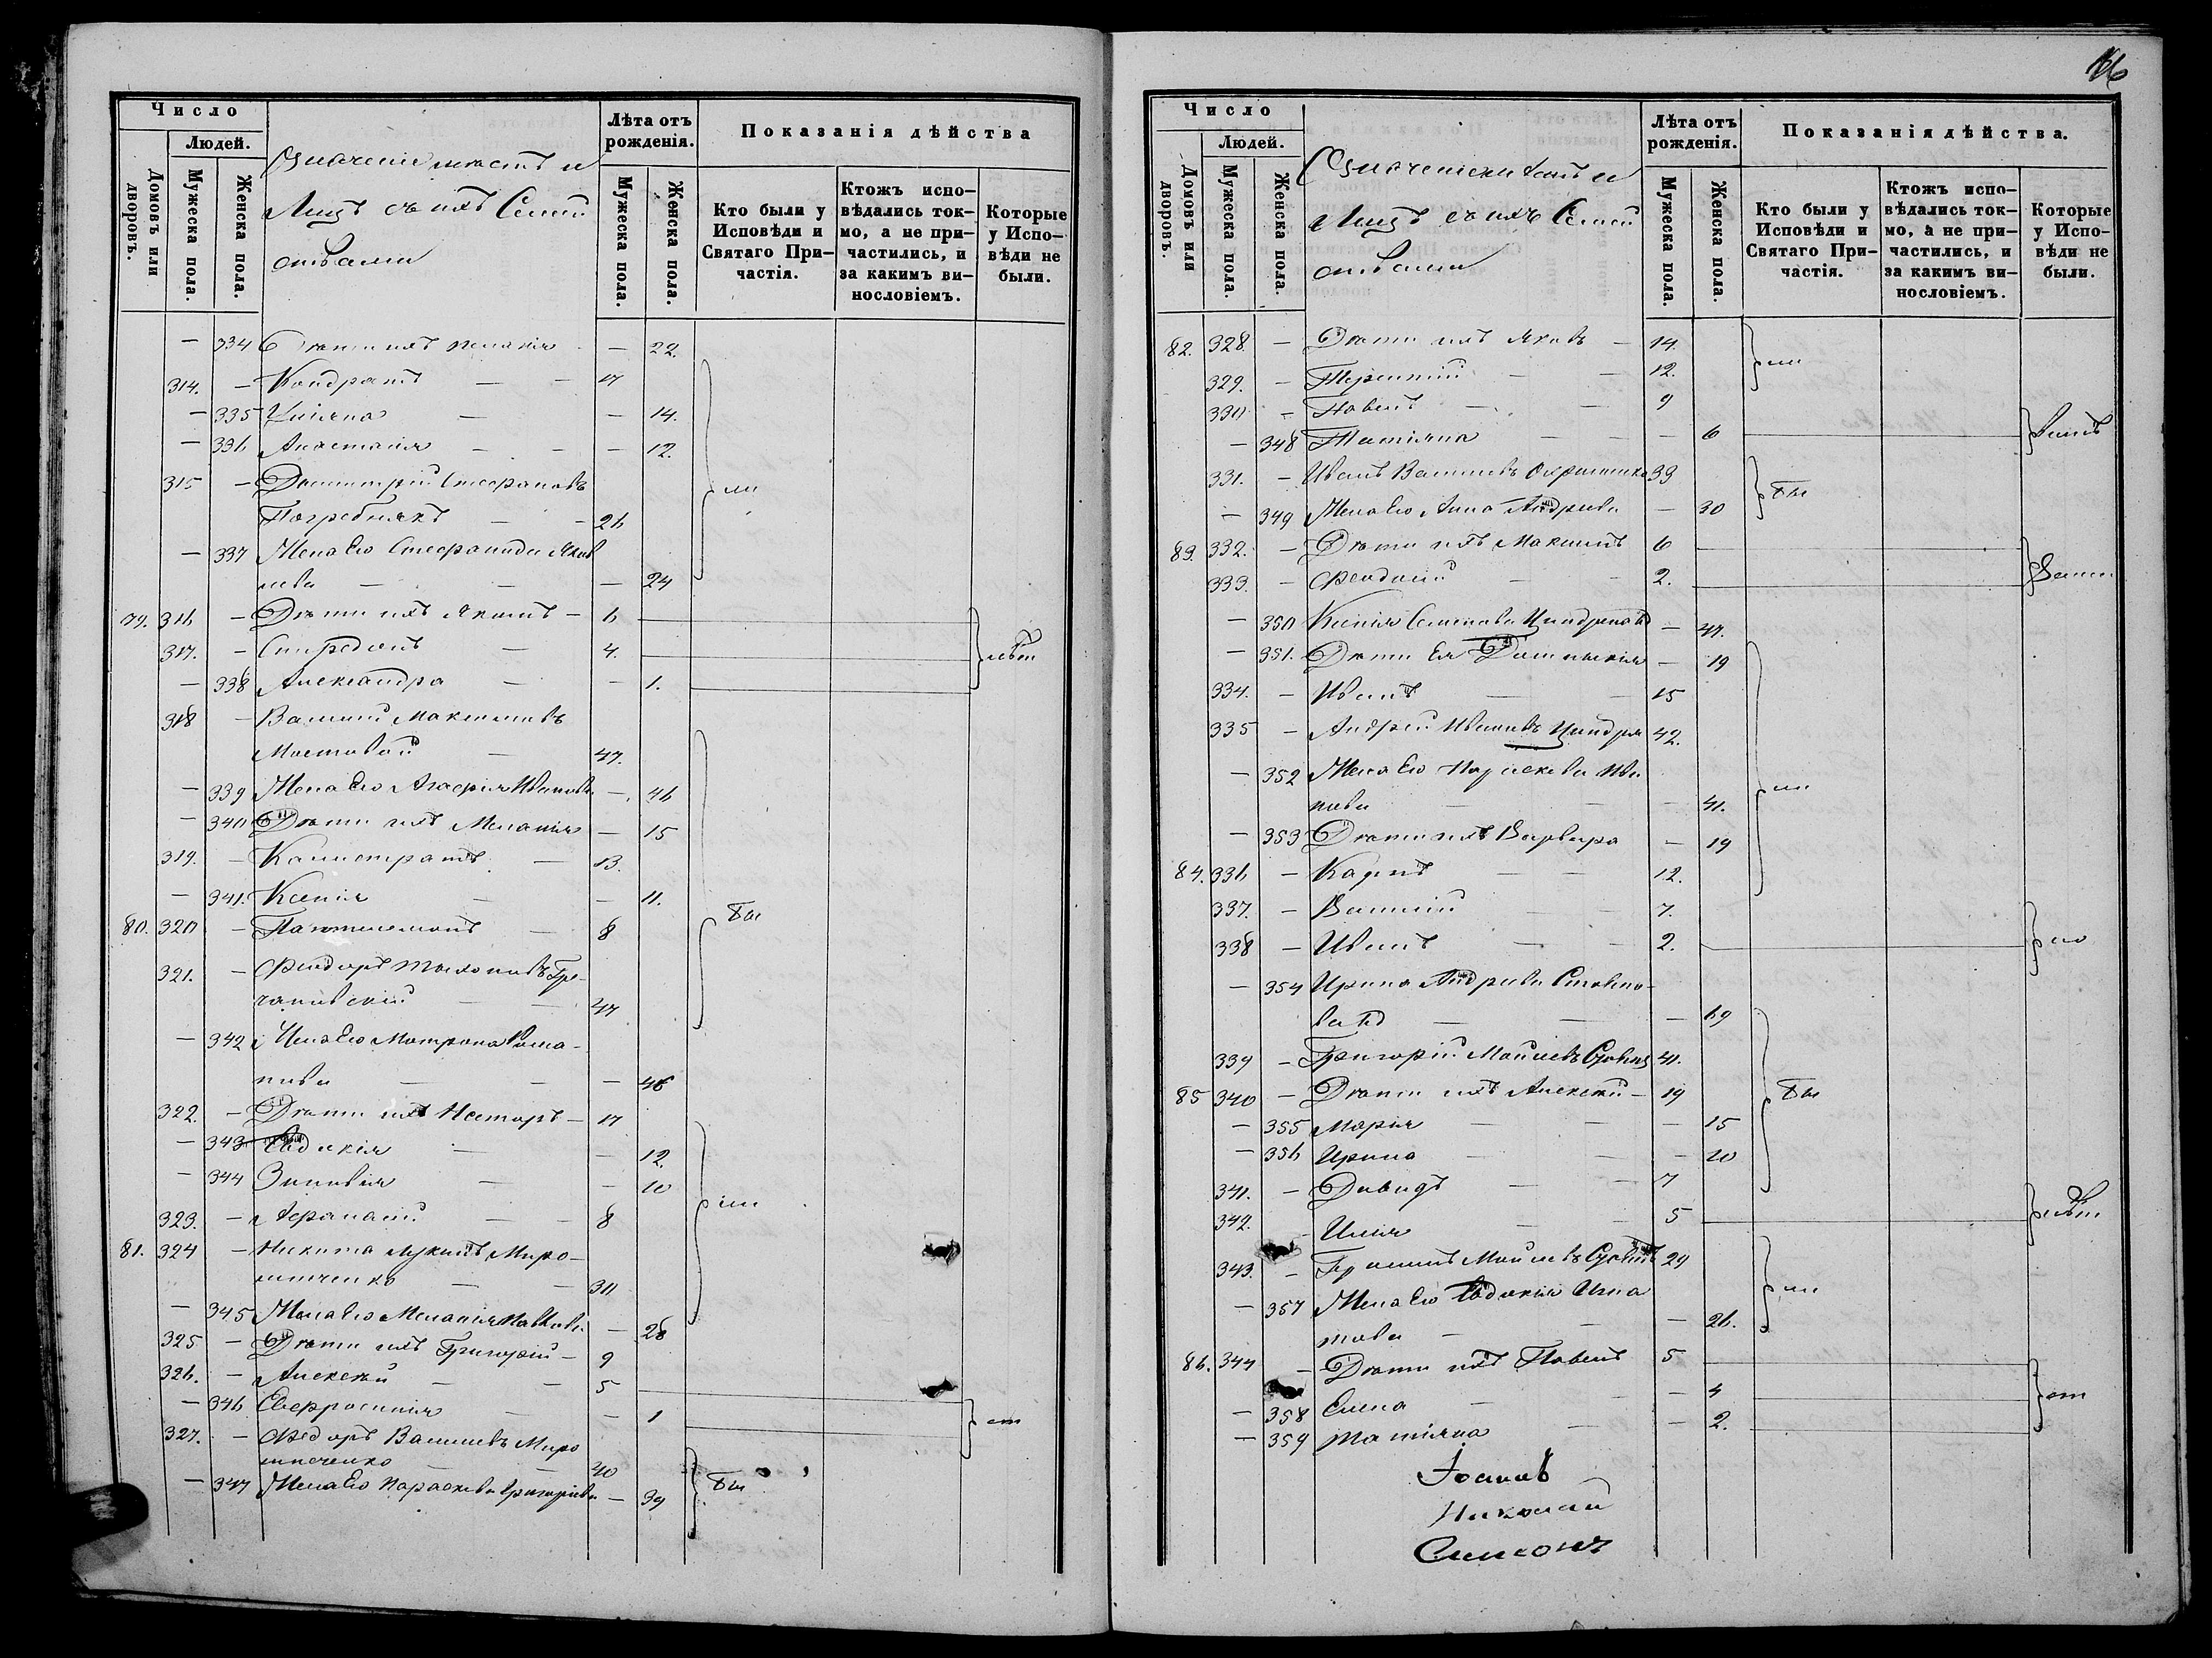 Число
Людей.
Домовъ или дворовъ.
Мужеска пола.
Женска пола.
Лицъ съ ихъ Семей
ствами
Лѣта отъ рожденія.
Мужеска пола.
Женска пола.
Показанія дѣйства
Кто были у Исповѣди и Святаго Причастія.
Ктожъ исповѣдались токмо, а не причастились, и за какимъ винословіемъ.
Которые у Исповѣди не были.
— 334 Дѣти ихъ Меланія — 22.
314. — Кондратъ — — 17
— 335 Уліяна — — 14.
— 336 Анастасія — — — 12.
315 — Димитрій Стефановъ
Погребнякъ — — 26
— 337 Жена Его Стефанида Яков
лева — — — 24
79. 316 — Дѣти ихъ Акимъ — 6
317. — Спиредонъ — 4.
— 338 Александра — — 1.
318 — Василій Максимовъ
Мостовой — 47.
— 339 Жена Его Агафія Иванова — 46
— 340 Дѣти ихъ Меланія — 15
319. — Калистратъ — 13.
— 341. Ксенія — — 11.
80. 320 — Пантелемонъ — 8
321. — Феодоръ Тихоновъ Гре-
чановскій — — 47
— 342 Жена Его Матрона Рома-
нова — — — 46
322. — Дѣти ихъ Несторъ — 17
— 343 Евдокія — — 12.
— 344 Зиновія — — 10
323. — Афанасій — — 8
81. 324 — Никита Лукинъ Миро-
шниченко — — 30
— 345 Жена Его Меланія Павлова — 28
325. — Дѣти ихъ Григорій — 9
326. — Алексѣй — — 5
— 346 Евфросинія — — 1
327. — Федоръ Васильевъ Миро
шниченко — — 40
— 347 Жена Его Параскева Григоріева — 39
ли
Бы
ли
Бы
16
Число
Людей.
Домовъ или дворовъ.
Мужеска пола.
Женска пола.
Лицъ съ ихъ Семей
ствами
Лѣта отъ рожденія.
Мужеска пола.
Женска пола.
Показанія дѣйства.
Кто были у Исповѣди и Святаго Причастія.
Ктожъ исповѣдались токмо, а не причастились, и за какимъ винословіемъ.
Которые у Исповѣди не были.
82. 328 — Дѣти ихъ Яковъ — 14.
329. — Терентій — — 12.
330 — Павелъ — — 9
— 348 Татіяна — — — 6
331. — Иванъ Васильевъ 33
— 349 Жена Его Анна Андреева — 30
83. 332. — Дѣти ихъ Максимъ 6
333. — Феодосій — — 2.
— 350 Ксенія Семенова — 47.
— 351. Дѣти Ея — 19
334. — Иванъ — — 15
335 — Андрей Ивановъ Циндря 42.
— 352 Жена Его Параскева Ива
нова — — — 41.
— 353 Дѣти ихъ Варвара — 19
84. 336 — Карпъ — — 12.
337. — Василій — — 7.
338 — Иванъ — — 2.
— 354 Ирина Андреева
— — — 69
339 — Григорій 41.
85 340 — Дѣти ихъ Алексѣй — 19
— 355 Марія — — — 15
— 356 Ирина — — — 10
341. — Давидъ — — 7
342. — Илія — — 5
343. — 29
— 357 Жена Его Евдокія Игна
това — — — 26.
86. 344 — Дѣти ихъ Павелъ 5
— 358 Елена — — — 4
— 359 Татіяна — — 2.
ли
Бы
ли
Бы
ли
Іоаннъ
Николай
Симеонъ